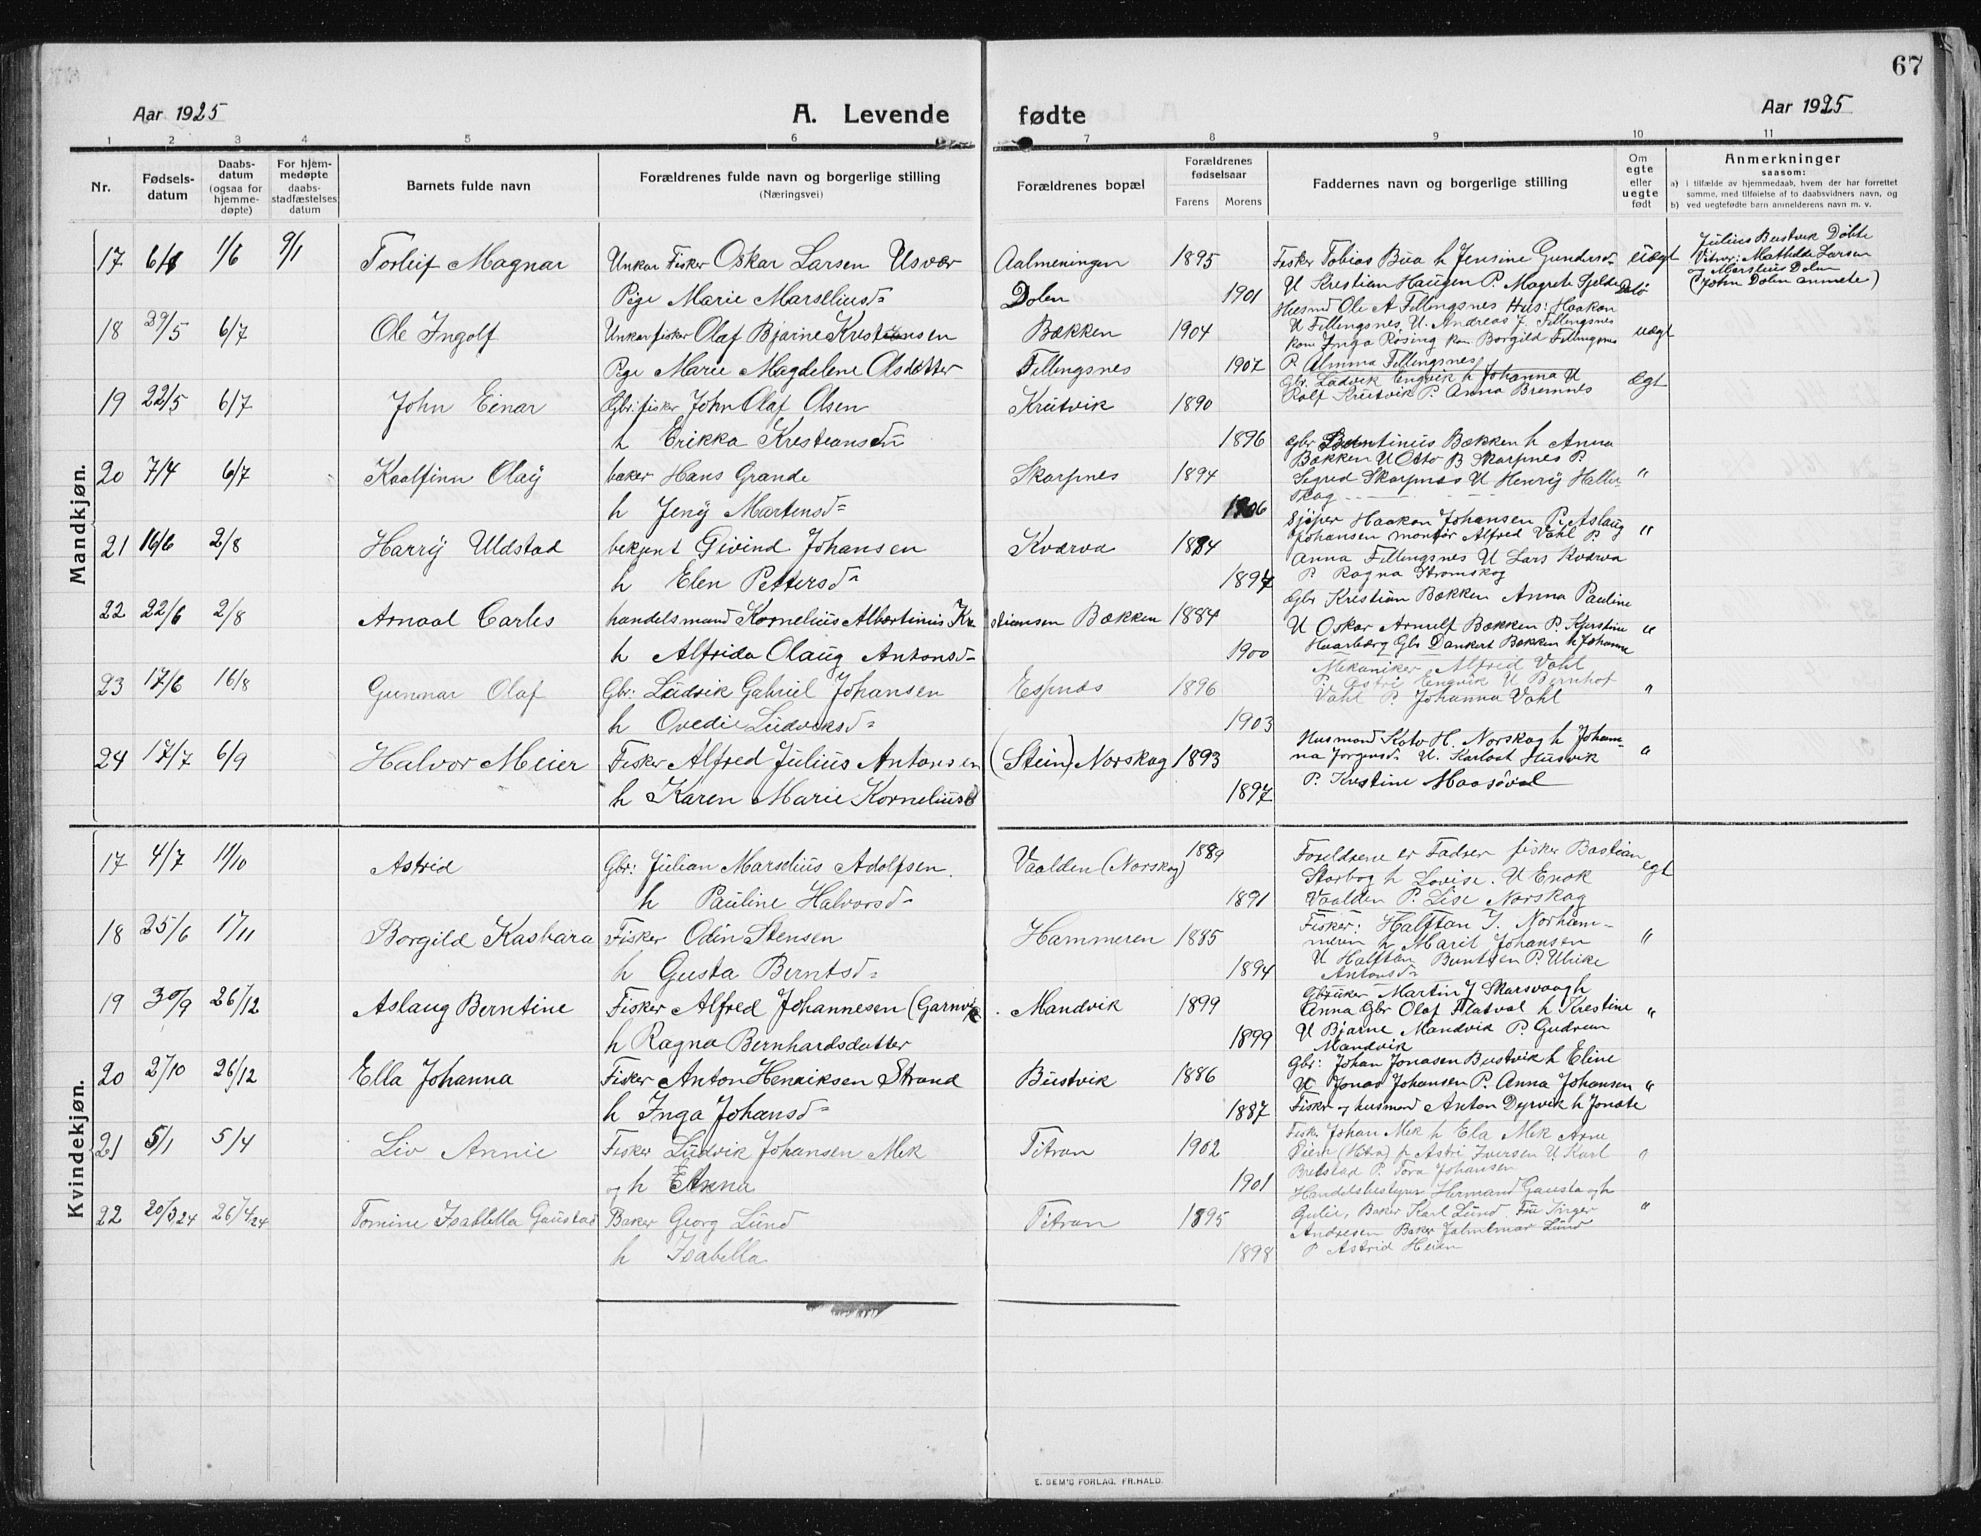 67
Aar 1925
A. Levende fødte
Aar 1925
1 2 3 4 5 6 7 8 9 10 11
Nr.
Fødsels-
datum
Daabs-
datum
(ogsaa for
hjemme-
døpte)
For hjem-
medøpte
daabs-
stadfæstelses
datum
Barnets fulde navn
Forældrenes fulde navn og borgerlige stilling
(Næringsvei)
Forældrenes bopæl
Forældrenes
fødselsaar
Farens Morens
Faddernes navn og borgerlige stilling
Om
egte
eller
uegte
født
Anmerkninger
saasom:
a) I tilfælde av hjemmedaab, hvem der har forrettet
samme, med tilføielse af to daabsvidners navn, og
b) ved uegtefødte barn anmelderens navn m. v.
Mandkjøn.
17 1/6 9/1 Torleif Magnar Unkar Fisker Oskar Larsen Usvær Aalmeningen 1895 Fisker Tobias Bua h Jensine Gundersd= uægt
Julius Bustvik Døbte
Vitner: Mathilde Larsen
og Marselius Dolen
(John Dolen anmete)
Pige Marie Marseliusd= Dolen 1901 U Kristian Haugen P. Magrete
Husmd Ole A Fillingsnes Hus: Haakon
18 29/5 6/7 Ole Ingolf Unkar fisker Olaf Bjarne Kristiansen Bækken 1904 U Fillingsnes, U. Andreas J. Fillingsnes uægt
kom Inga Røsing kom Borgild Fillingsnes
Pige Marie Magdelene Olsdatter Fillingsnes 1907 P. Almina Fillingsnes
Gbr. Ludvik Engvik h Johanna U
19 22/5 6/7 John Einar Gbr: fisker John Olaf Olsen Krutvik 1890 Rolf Krutvik P. Anna Bremnes Ægt
h Erikka Kristiansdn 1896 Gbr Berntinius Bækken h Anna
Bækken U Otto B Skarpnes P
20 7/4 6/7 Kaalfinn Olay baker Hans Grande Skarpnes 1894 Sigrid Skarpnes U Henry Haller- "
skog
h Jeny Martensd= 1906
Sjøper Haakon Johansen P. Aslaug
21 16/6 2/8 Harry Uldstad Eivind Johansen Kværva 1884 Johansen montør Alfred Vahl P "
Anna Fillingsnes U Lars Kværva
h Elen Pettersd= 1897 P. Ragna Strømskog
Gbr Kristian Bækken Anna Pauline
22 22/6 2/8 Arnaal Carles handelsmand Kornelius Albertinius Kristiansen Bækken 1884 U Oskar Arnulf Bækken P. Kjerstine "
h Alfrida Olaug Antonsd= 1900 Gbr Dankert Bækken h Johanne
Mekaniker Alfred Vahl
23 17/6 16/8 Gunnar Olaf Gbr: Ludvik Gabriel Johansen Espnes 1896 P. Astri Engvik U Bernhof "
Vahl P. Johanna Vahl
h Ovedie Ludviksd= 1903
24 17/7 6/9 Halvor Meier Fisker Alfred Julius Antonsen (Stein) Norskag 1893 Husmand Kato H. Norskag h Johan- "
na Jørgensd= U. Karloat Husvik
h Karen Marie Korneliusd 1897 P. Kristine Maasøval
Kvindekjøn.
17 4/7 11/10 Astrid Gbr: Julian Marselius Adolfsen. Vaalden (Norskag) 1889 Foreldrene er Fadrer fisker Bastian egt
Storbog h Lovise. U Enok
h Pauline Halvorsd= 1891 Vaalden P. Lise Norskag
18 25/6 17/11 Borgild Kasbara Fisker Odin Stensen Hammeren 1885 Fisker: Halftan J. Norham- "
meren h Marit Johansen
h Gusta Berntsd= 1894 U Halftan Buntsen P. Ulrike
Antonsd=
19 30/9 26/12 Aslaug Berntine Fisker Alfred Johannesen (Garnvik Mandvik 1899 Gbruker Martin J Skarsvaag h
Anna Gbr Olaf Flatval h Kristine "
h Ragna Bernhardsdatter 1899 U Bjarne Mandvik P. Gudrun
Mandvik
20 2/10 26/12 Ella Johanna Fisker Anton Henriksen Strand Bustvik 1886 Gbr: Johan Jonasen Bustvik h Eline
U Jonas Johansen P. Anna Johansen "
h Inga Johansd= 1887 Fisker og husmand Anton Dyrvik h Jonate
21 5/1 5/4 Liv Annie Fisker Ludvik Johansen Mek Titran 1902 Fisker Johan Mek h Ela Mek Arne
Øiem (Hitra) P Astri Iversen U. Karl "
og h Anna 1901 Bretstad P. Tora Johansen
22 20/3 24 26/4 24 Tomine Isabbella Gaustad Baker Georg Lund Titran 1895 Handelsbestyrer Hermand Gausta og h
Gulie, Baker Karl Lund. Inger "
Andresen Baker Jalmlmar Lund
h Isabella 1898 P Astrid Heien
E. SEM'S FORLAG, FR.HALD.